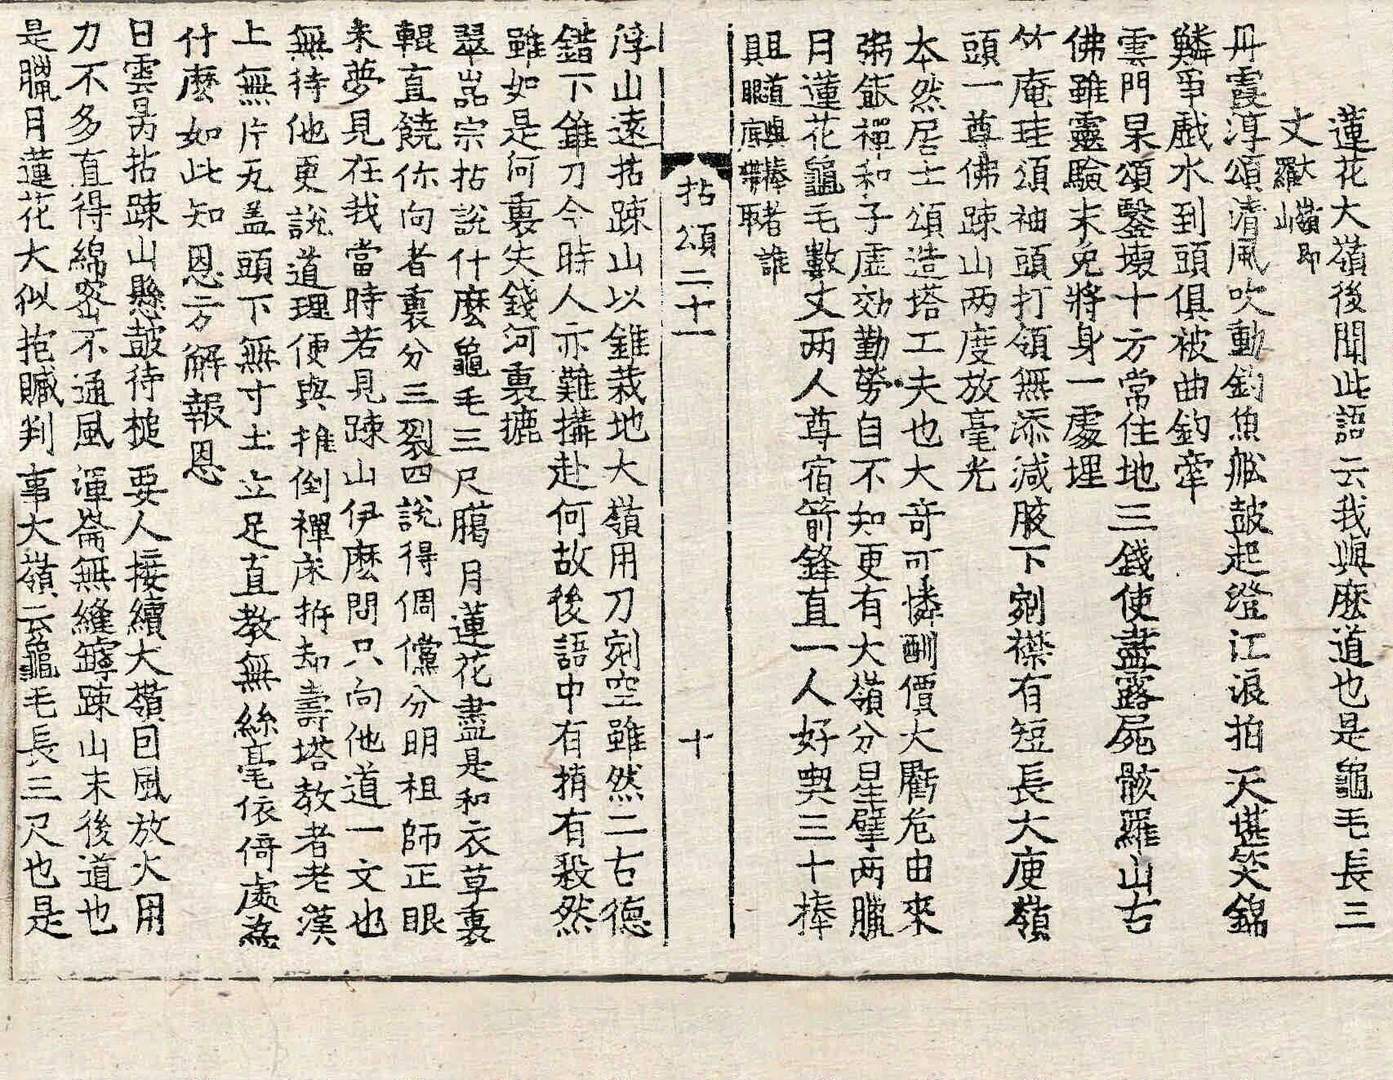 蓮花大嶺後聞此語云我與麽道也是龜毛長三
丈大嶺即羅山
丹霞淳頌清風吹動釣魚舩皷起澄江浪拍天堪笑錦
鱗爭戲水到頭俱被曲鈎牽
雲門杲頌鑿壞十方常住地三錢使盡露屍骸羅山古
佛雖靈驗未免將身一處埋
竹庵珪頌袖頭打領無添減腋下剜襟有短長大庾嶺
頭一尊佛踈山两度放毫光
本然居士頌造塔工夫也大竒可憐酬價大虧危由來
粥飯禪和子虛効勤勞自不知更有大嶺分星擘两臘
月蓮花龜毛數丈两人尊宿箭鋒直一人好喫三十棒
且道與棒者誰具眼底辯取
拈頌二十一
十
浮山遠拈踈山以錐栽地大嶺用刀剜空雖然二古德
錯下錐刀今時人亦難搆赴何故後語中有捎有殺然
雖如是何裏失錢河裏摝
翠嵓宗拈說什麽龜毛三尺臈月蓮花盡是和衣草裏
輥直饒你向者裏分三裂四說得倜儻分明祖師正眼
未夢見在我當時若見踈山伊麽問只向他道一文也
無待他更說道理便與推倒禪床拆却壽塔教者老漢
上無片瓦盖頭下無寸土立足直教無絲毫依倚處爲
什麽如此知恩方解報恩
日雲昺拈踈山懸皷待槌要人接續大嶺因風放火用
力不多直得綿密不通風渾崙無縫罅踈山末後道也
是臘月蓮花大似抱贓判事大嶺云龜毛長三尺也是